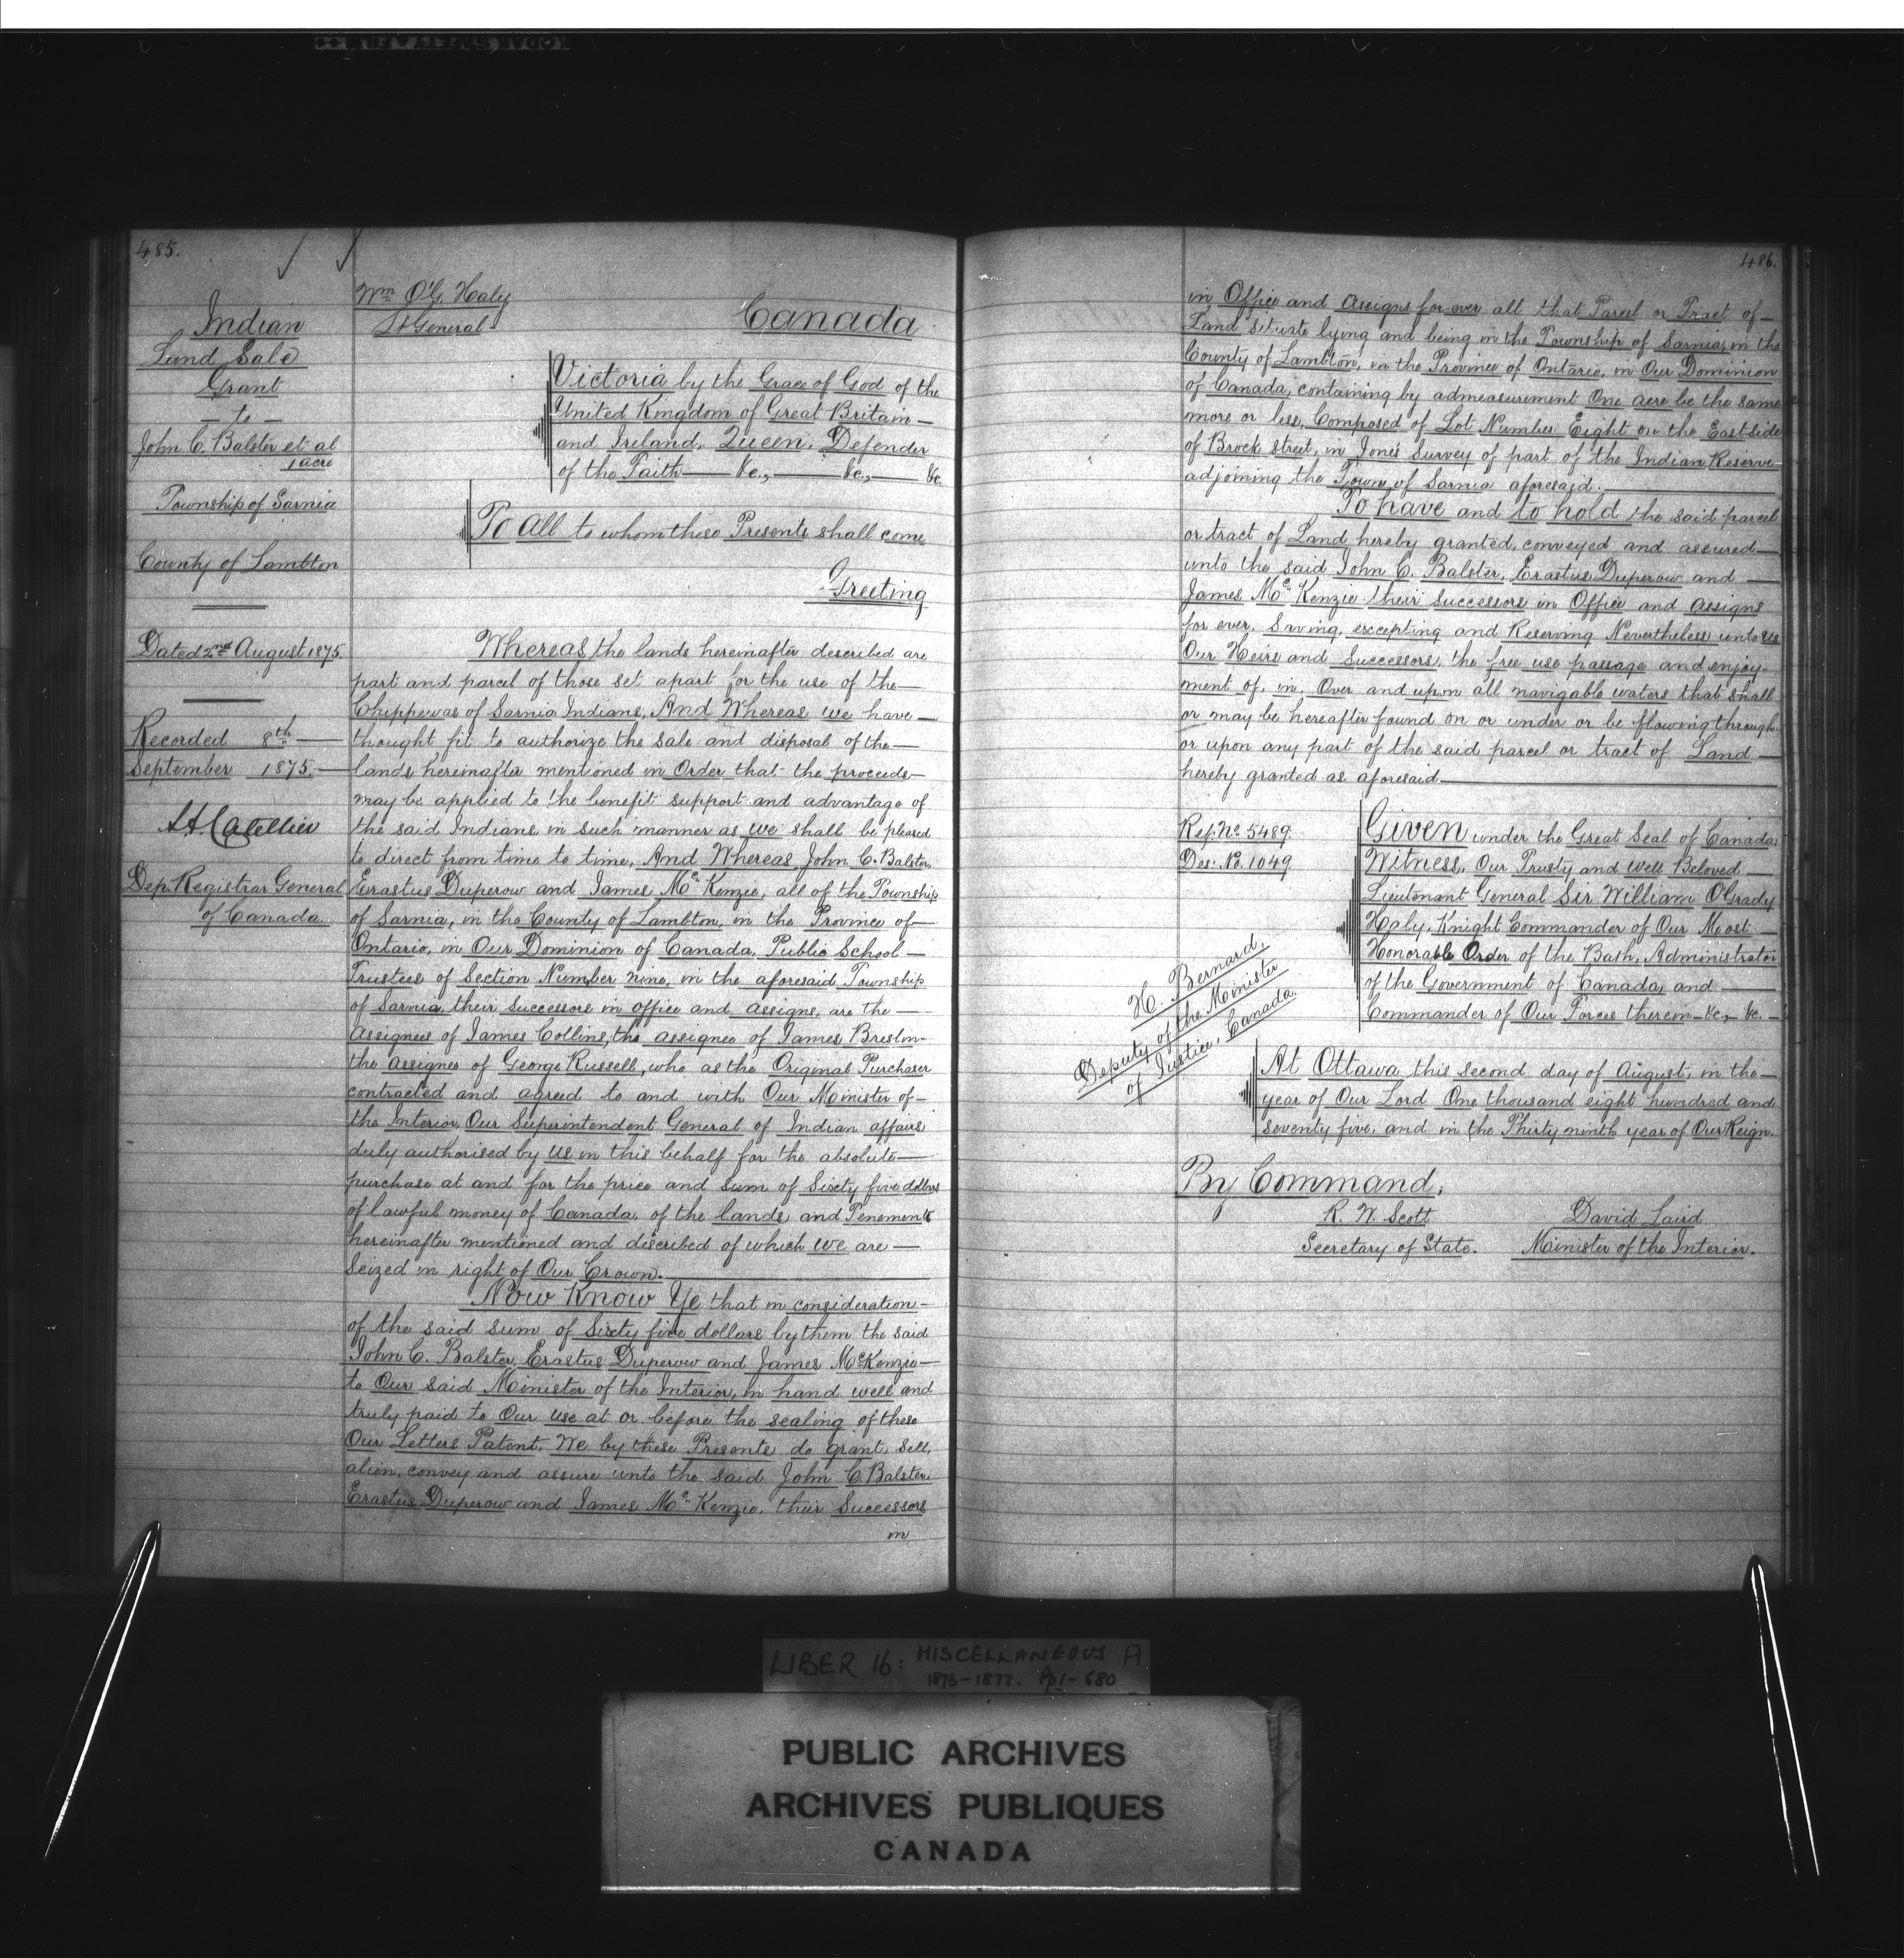 485.
Indian
Land Sale
Grant
— to —
John C. Balster et al
1 acre
Township of Sarnia
County of Lambton
Dated 2nd August 1875.
Recorded 8th
September 1875.
Dep. Registrar General
of Canada.
Wm O'G. Haly
Lt General
Canada
Victoria by the Grace of God of the
United Kingdom of Great Britain —
and Ireland, Queen, Defender
of the Faith — &c., — &c., — &c.
To All to whom these Presents shall come
Greeting
Whereas the lands hereinafter described are
part and parcel of those set apart for the use of the —
Chippewas of Sarnia Indians, And Whereas we have —
thought fit to authorize the sale and disposal of the —
lands hereinafter mentioned in Order that the proceeds
may be applied to the benefit support and advantage of
the said Indians in such manner as we shall be pleased
to direct from time to time, And Whereas John C. Balster,
Erastus Duperow and James Mc Kenzie, all of the Township
of Sarnia, in the County of Lambton, in the Province of —
Ontario, in Our Dominion of Canada, Public School —
Trustees of Section Number nine, in the aforesaid Township
of Sarnia, their successors in office and assigns, are the —
assignees of James Collins, the assignee of James Breslin —
the assignee of George Russell, who as the Original Purchaser
contracted and agreed to and with Our Minister of —
the Interior, Our Superintendent General of Indian affairs
duly authorised by us in this behalf for the absolute —
purchase at and for the price and sum of Sixty five dollars
of lawful money of Canada, of the lands, and Tenements
hereinafter mentioned and discribed of which we are —
Seized in right of Our Crown.
Now Know Ye that in consideration —
of the said sum of Sixty five dollars by them the said
John C. Balster, Erastus Duperow and James McKenzie —
to Our said Minister of the Interior, in hand well and
truly paid to Our use at or before the sealing of these
Our Letters Patent, We by these Presents do grant, sell,
alien, convey and assure unto the said John C. Balster,
Erastus Duperow and James Mc Kenzie, their Successors
in
486.
in Office and assigns for ever all that Parcel or Tract of —
Land situate lying and being in the Township of Sarnia, in the
County of Lambton, in the Province of Ontario, in Our Dominion
of Canada, containing by admeasurement One acre be the same
more or less, Composed of Lot Number Eight on the East side
of Brock Street, in Jones Survey of part of the Indian Reserve —
adjoining the Town of Sarnia aforesaid.
To have and to hold the said parcel
or tract of Land hereby granted, conveyed and assured —
unto the said John C. Balster, Erastus Duperow and —
James Mc Kenzie their Successors in Office and Assigns
for ever, Saving, excepting and Reserving Nevertheless unto us
Our Heirs and Successors, the free use passage and enjoy-
ment of, in, Over and upon all navigable waters that shall
or may be hereafter found on or under or be flowing through
or upon any part of the said parcel or tract of Land —
hereby granted as aforesaid —
Ref. No. 5489.
Des: No. 1049.
Given under the Great Seal of Canada:
Witness, Our Trusty and Well Beloved —
Lieutenant General Sir William O'Grady
Haly, Knight Commander of Our Most —
Honorable Order of the Bath, Administrator
of the Government of Canada, and —
Commander of Our Forces therein — &c., — &c. —
H. Bernard,
Deputy of the Minister
of Justice, Canada.
At Ottawa this second day of August, in the —
year of Our Lord One thousand eight hundred and
seventy five, and in the Thirty ninth year of Our Reign.
By Command,
R. W. Scott
Secretary of State.
David Laird
Minister of the Interior.
LIBER 16: MISCELLANEOUS A
1873-1877. Pp 1-680
PUBLIC ARCHIVES
ARCHIVES PUBLIQUES
CANADA